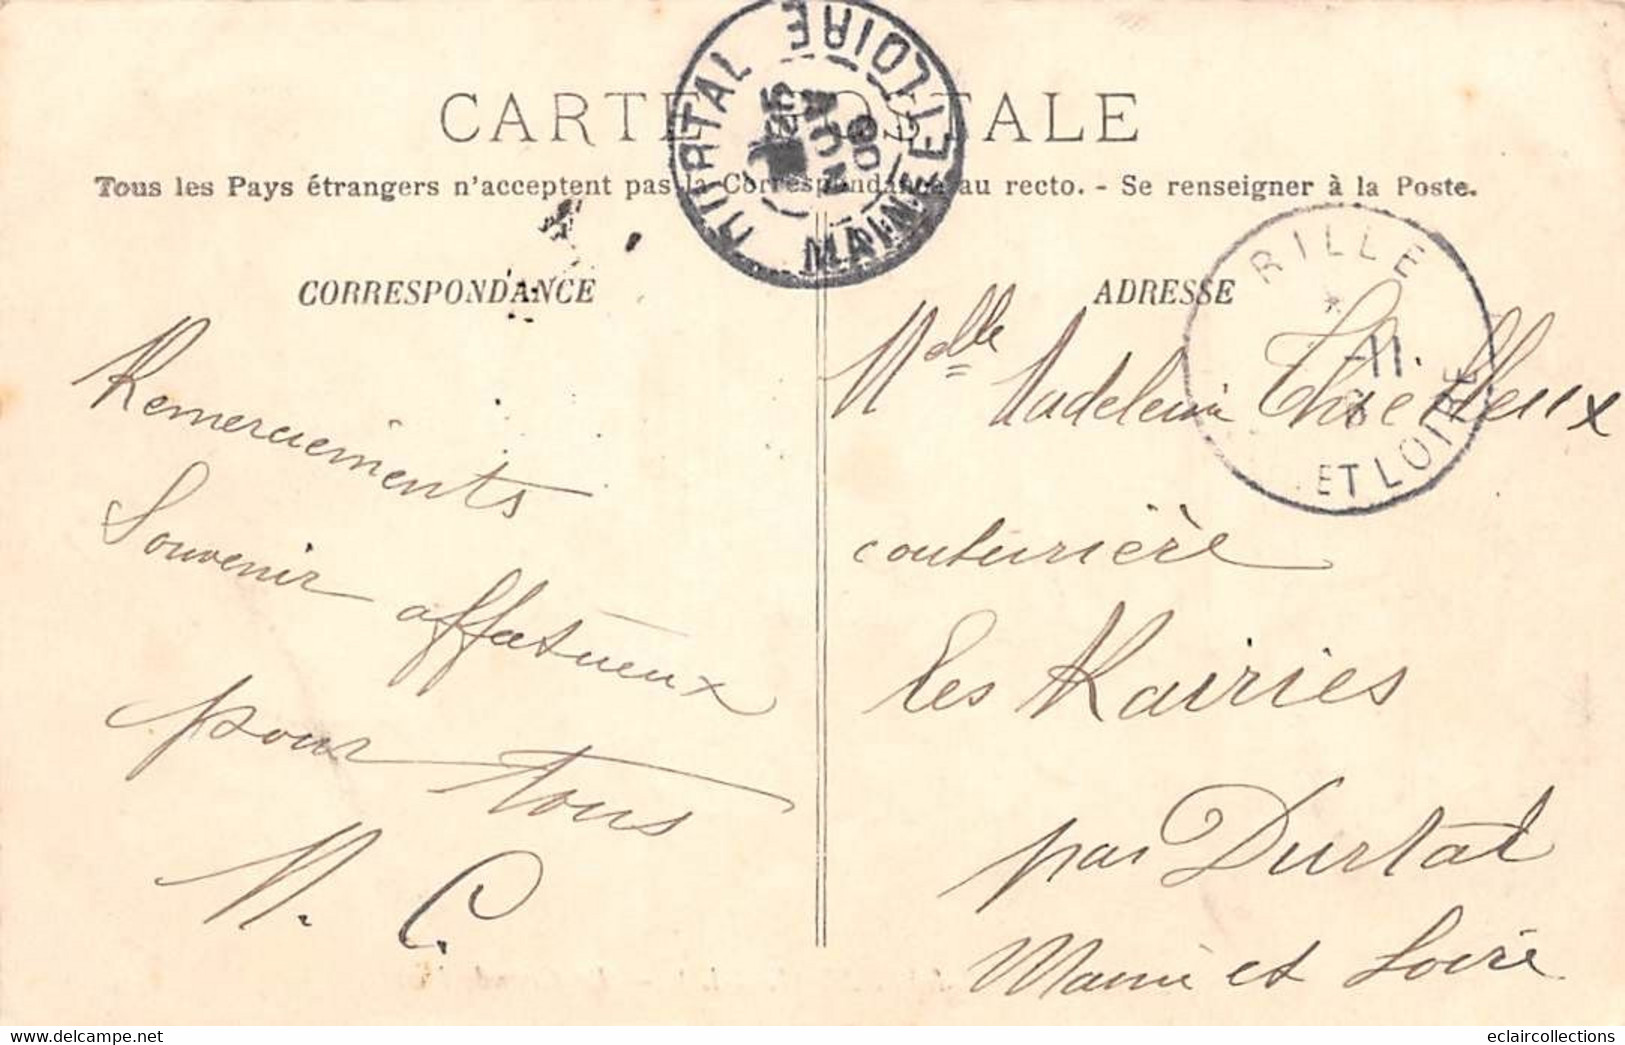 CARTE POSTALE
Tous les Pays étrangers n'acceptent pas la Correspondance au recto. - Se renseigner à la Poste.
DURTAL
MAINE ET LOIRE
NOV
08
RILLE
-11.
ET LOIRE
CORRESPONDANCE
Remerciements
Souvenir affectueux
pour tous
M. C.
ADRESSE
Melle Madeleine
couturière
Les Rairies
par Durtal
Maine et Loire
delcampe.net
eclaircollections